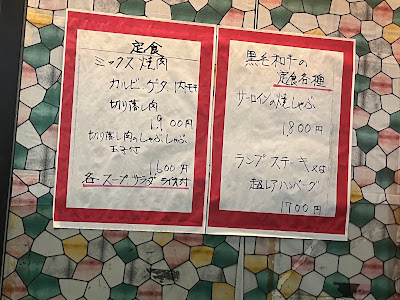 定食
ミックス焼肉
カルビ ゲタ 内モモ
切り落し肉
1,900円
切り落し肉のしゃぶしゃぶ
玉子付
1600円
各・スープ サラダ ライス付
黒毛和牛の
定食各種
サーロインの焼しゃぶ
1800円
ランプステーキ又は
超レアハンバーグ
1700円